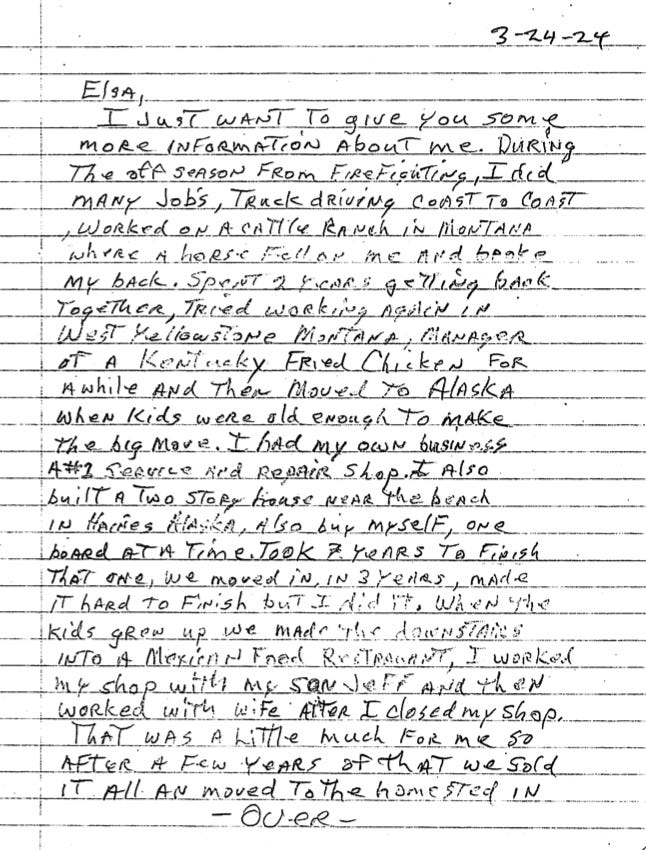 3-24-24
Elsa,
I Just want to give you some
more information about me. During
The off season from Firefighting, I did
many Job's, Truck driving coast to coast
, worked on a cattle Ranch in Montana
where a horse fell on me and broke
my back. Spent 2 years getting back
Together, Tried working again in
West Yellowstone Montana, Manager
of A Kentucky Fried Chicken for
Awhile and Then Moved To Alaska
when kids were old enough To make
the big move. I had my own business
A#1 Service and Repair Shop. I Also
built A Two story house near the beach
in Haines Alaska, Also buy myself, one
board at a Time. Took 7 years To Finish
That one, we moved in, in 3 years, made
it hard to Finish but I did it. When the
kids grew up we made the downstairs
into a Mexican Food Restraunt, I worked
my shop with my son Jeff and then
worked with wife after I closed my shop.
That was a little much for me so
after a few years of that we sold
it all an moved To the homested in
- Over -